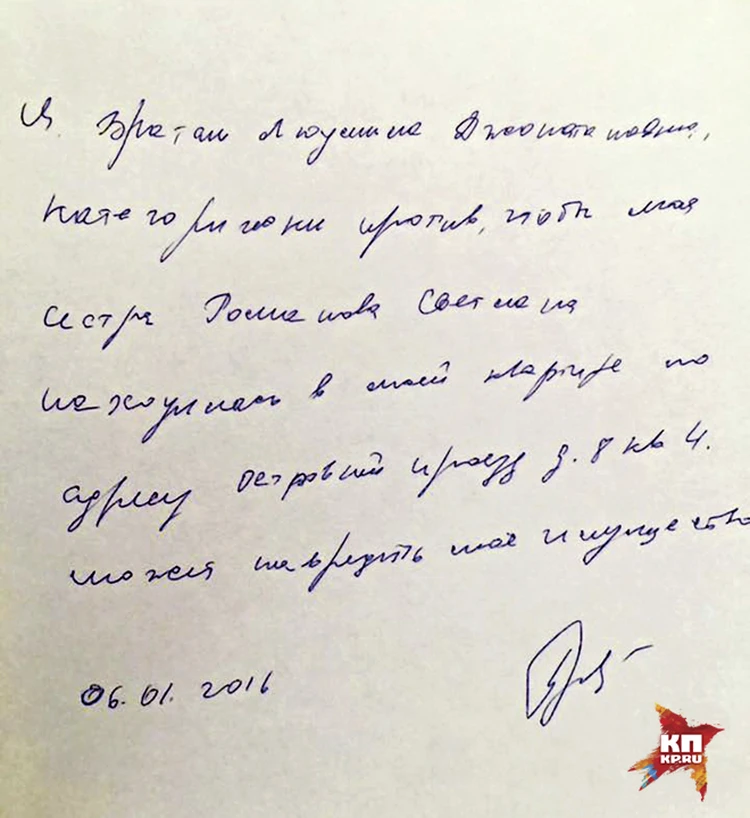 Я, Браташ Людмила Джоната новна,
категорически против, чтобы моя
сестра Романова Светлана
находилась в моей квартире по
адресу Островной проезд д. 8 кв 4.
может повредить мое имущество
06.01.2016
КП
KP.RU